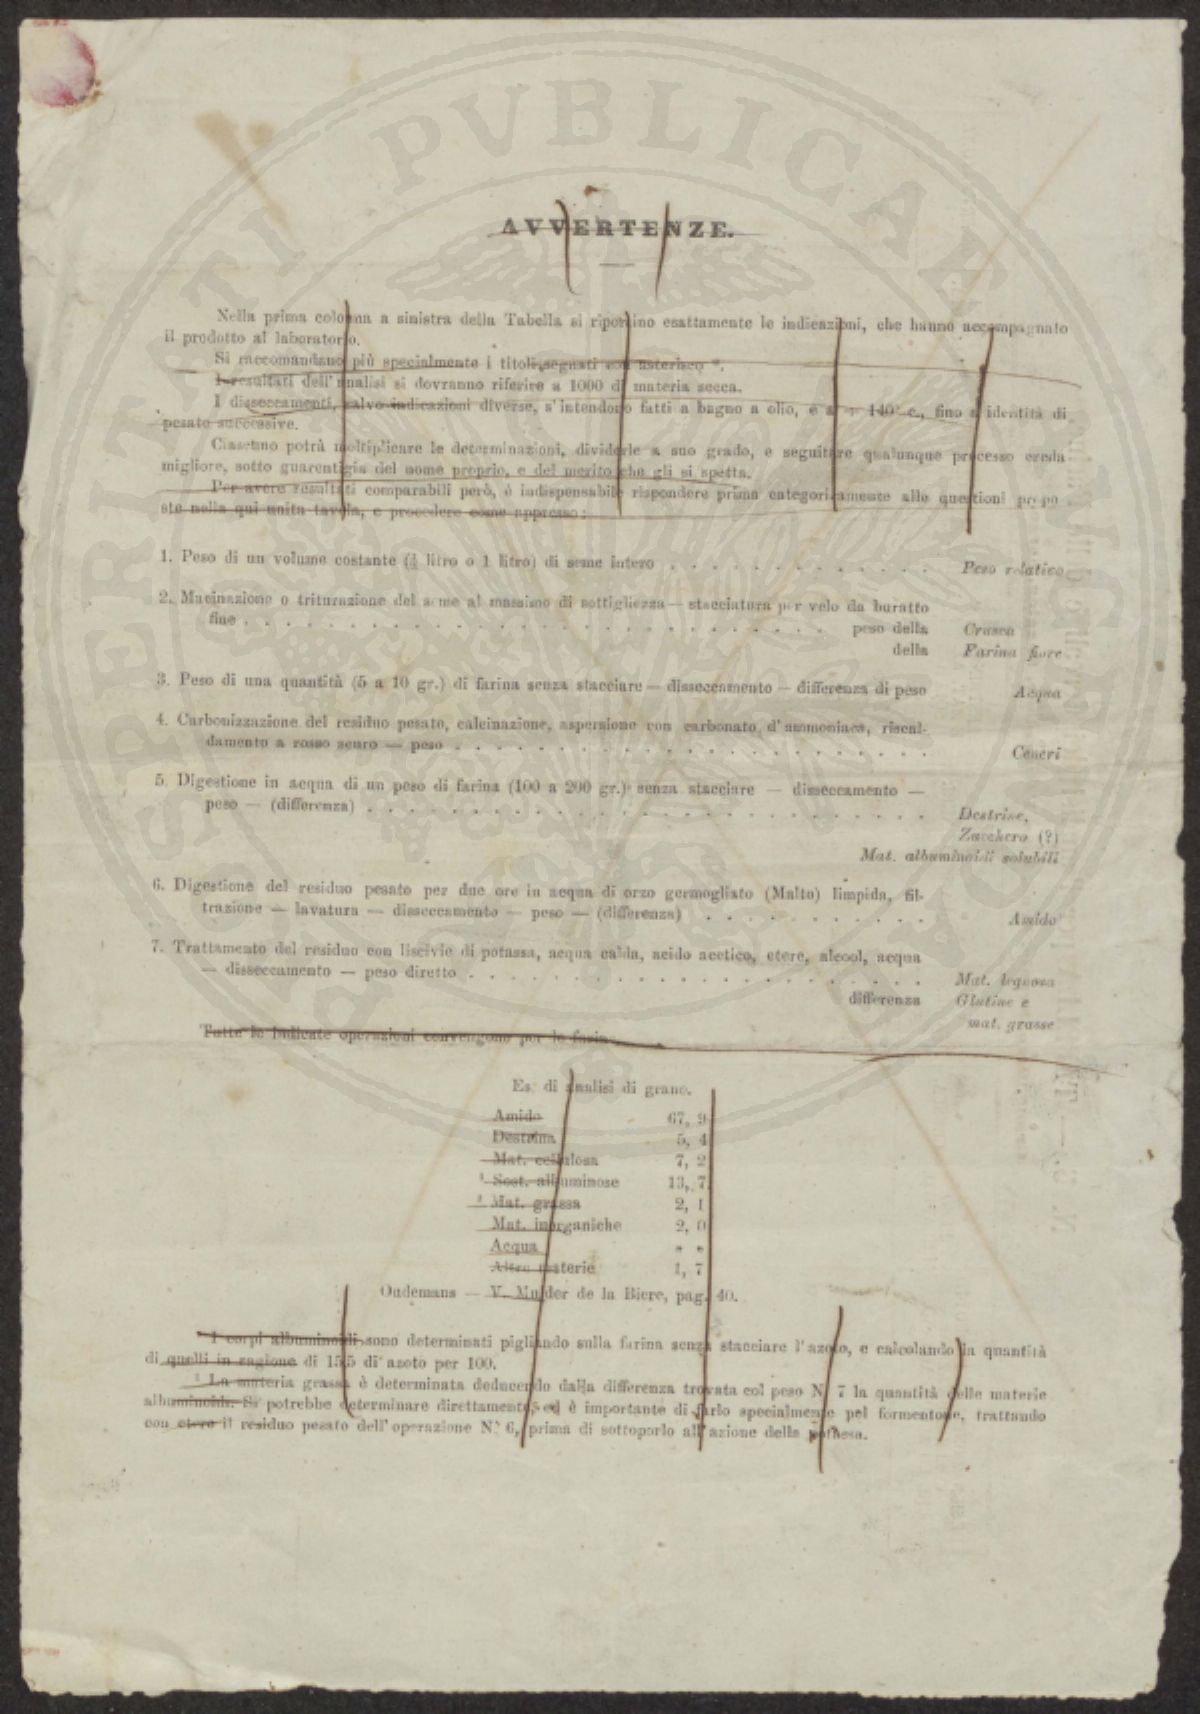 AVVERTENZE.
Nella prima colonna a sinistra della Tabella si riportino esattamente le indicazioni, che hanno accompagnato
il prodotto al laboratorio.
Si raccomandano più specialmente i titoli segnati con asterisco *.
I resultati dell'analisi si dovranno riferire a 1000 di materia secca.
I disseccamenti, salvo indicazioni diverse, s'intendono fatti a bagno a olio, e a + 140° c., fino a identità di
pesate successive.
Ciascuno potrà moltiplicare le determinazioni, dividerle a suo grado, e seguitare qualunque processo creda
migliore, sotto guarentigia del nome proprio, e del merito che gli si spetta.
Per avere resultati comparabili però, è indispensabile rispondere prima categoricamente alle questioni propo-
ste nella qui unita tavola, e procedere come appresso:
1. Peso di un volume costante (½ litro o 1 litro) di seme intero . . . . . . . . . . . . . Peso relativo
2. Macinazione o triturazione del seme al massimo di sottigliezza — stacciatura per velo da buratto
fine . . . . . . . . . . . . . . . . . . . . . . . . . . . . peso della Crusca
della Farina fiore
3. Peso di una quantità (5 a 10 gr.) di farina senza stacciare — disseccamento — differenza di peso Acqua
4. Carbonizzazione del residuo pesato, calcinazione, aspersione con carbonato d'ammoniaca, riscal-
damento a rosso scuro — peso . . . . . . . . . . . . . . . . . . . . . . . Ceneri
5. Digestione in acqua di un peso di farina (100 a 200 gr.) senza stacciare — disseccamento —
peso — (differenza) . . . . . . . . . . . . . . . . . . . . . . . . . . . Destrine,
Zucchero (?)
Mat. albuminoidi solubili
6. Digestione del residuo pesato per due ore in acqua di orzo germogliato (Malto) limpida, fil-
trazione — lavatura — disseccamento — peso — (differenza) . . . . . . . . . . . Amido
7. Trattamento del residuo con liscivie di potassa, acqua calda, acido acetico, etere, alcool, acqua
— disseccamento — peso diretto . . . . . . . . . . . . . . . . . . . . . . Mat. legnosa
differenza Glutine e
mat. grasse
Tutte le indicate operazioni convengono per le farin
Es. di analisi di grano.
Amido 67, 9
Destrina 5, 4
Mat. cellulosa 7, 2
¹ Sost. albuminose 13, 7
² Mat. grassa 2, 1
Mat. inorganiche 2, 0
Acqua " "
Altre materie 1, 7
Oudemans — V. Mulder de la Biere, pag. 40.
¹ I corpi albuminoidi sono determinati pigliando sulla farina senza stacciare l'azoto, e calcolando la quantità
di quelli in ragione di 15,5 di azoto per 100.
² La materia grassa è determinata deducendo dalla differenza trovata col peso N° 7 la quantità delle materie
albuminoidi. Si potrebbe determinare direttamente, ed è importante di farlo specialmente pel formentone, trattando
con etere il residuo pesato dell'operazione N.° 6, prima di sottoporlo all'azione della potassa.